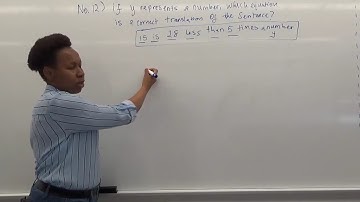 No. 12) If y represents a number, which equation
is a correct translation of the sentence?
15 is 28 less than 5 times a number
y